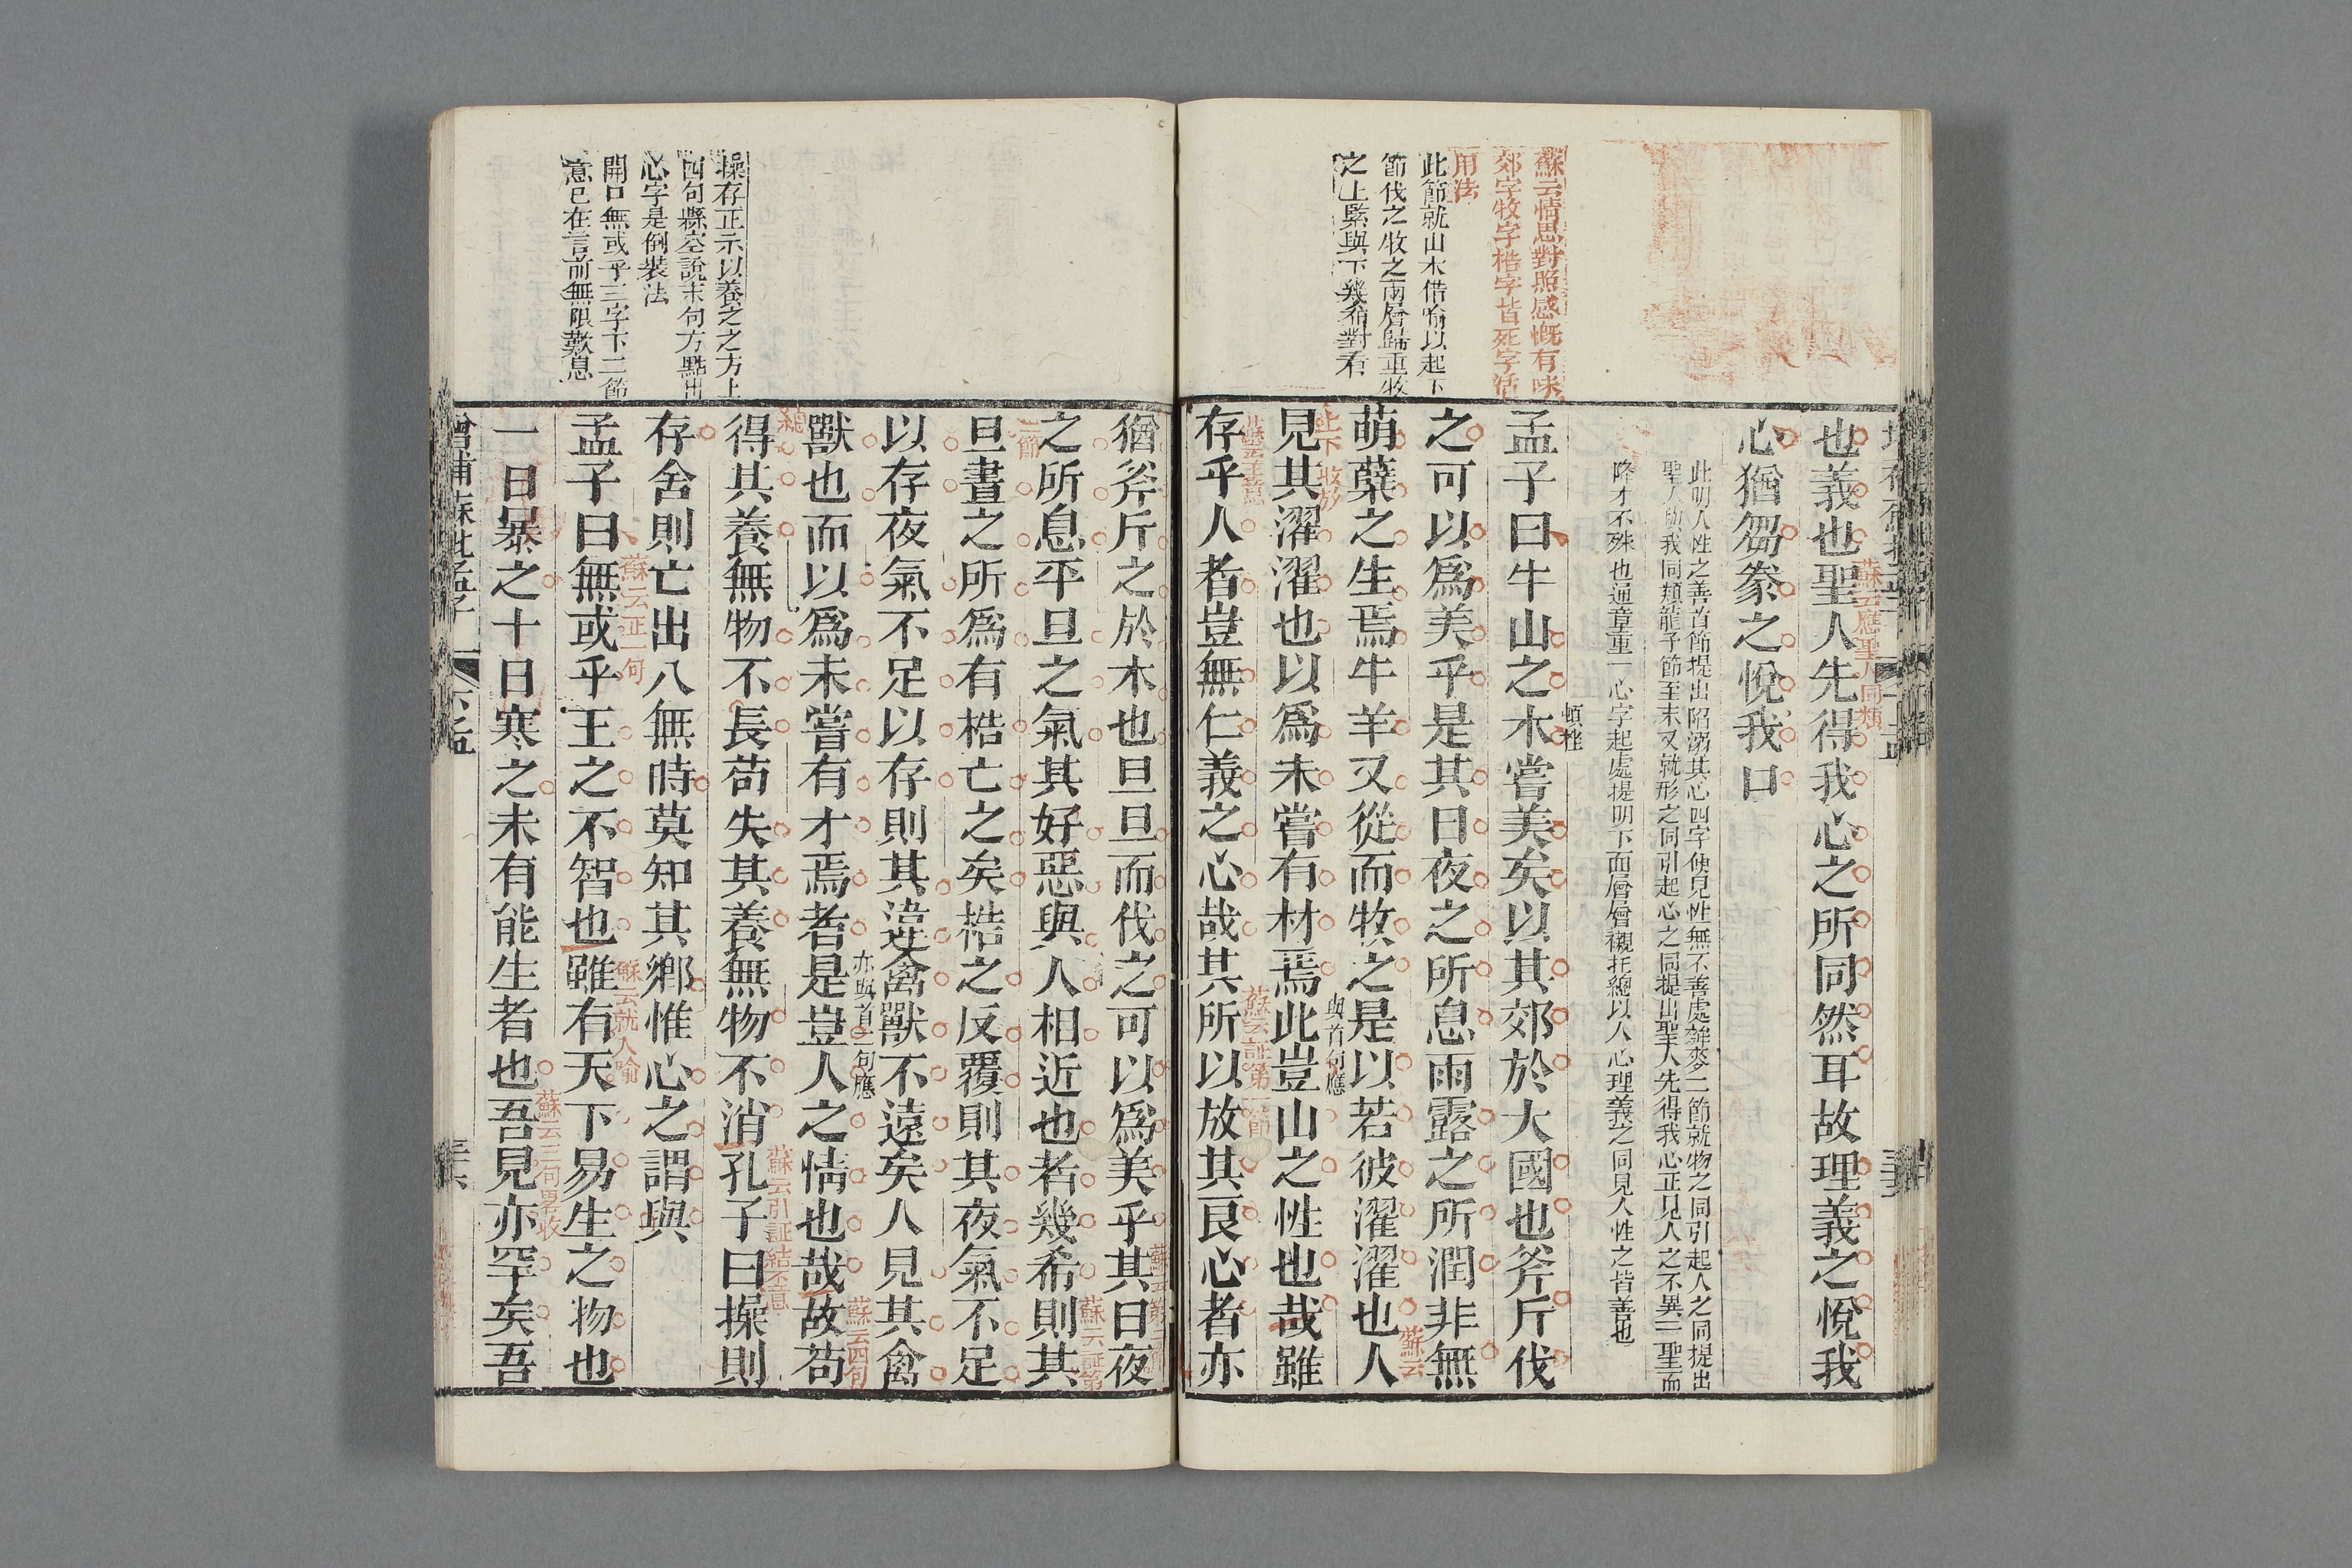 蘇云情思對照感慨有味
郊字牧字梏字皆死字活
用法
此節就山木借喻以起下
節伐之牧之兩層歸重牧
之上緊與下幾希對看
也義也聖人先得我心之所同然耳故理義之悅我
蘇云應聖人同類
心猶芻豢之悅我口
此明人性之善首節提出陷溺其心四字便見性無不善處麰麥二節就物之同引起人之同提出
聖人與我同類龍子節至末又就形之同引起心之同提出聖人先得我心正見人之不異二聖而
降才不殊也通章重一心字起處提明下面層層襯托總以人心理義之同見人性之皆善也
孟子曰牛山之木嘗美矣以其郊於大國也斧斤伐
之可以爲美乎是其日夜之所息雨露之所潤非無
萌蘖之生焉牛羊又從而牧之是以若彼濯濯也人
蘇云
上下收放
見其濯濯也以爲未嘗有材焉此豈山之性也哉雖
與首句應
存乎人者豈無仁義之心哉其所以放其良心者亦
操存正示以養之之方上
四句縣空說末句方點出
心字是倒裝法
開口無或乎三字下二節
意已在言前無限歎息
猶斧斤之於木也旦旦而伐之可以爲美乎其日夜
之所息平旦之氣其好惡與人相近也者幾希則其
蘇云証第
二節
旦晝之所爲有梏亡之矣梏之反覆則其夜氣不足
以存夜氣不足以存則其違禽獸不遠矣人見其禽
獸也而以爲未嘗有才焉者是豈人之情也哉故苟
亦與首二句應
蘇云四句
總
得其養無物不長苟失其養無物不消孔子曰操則
蘇云引証結
存舍則亡出入無時莫知其鄉惟心之謂與
孟子曰無或乎王之不智也雖有天下易生之物也
蘇云正一句
蘇云就人喻
一日暴之十日寒之未有能生者也吾見亦罕矣吾
蘇云三句畧收
增補蘇批孟子
下孟